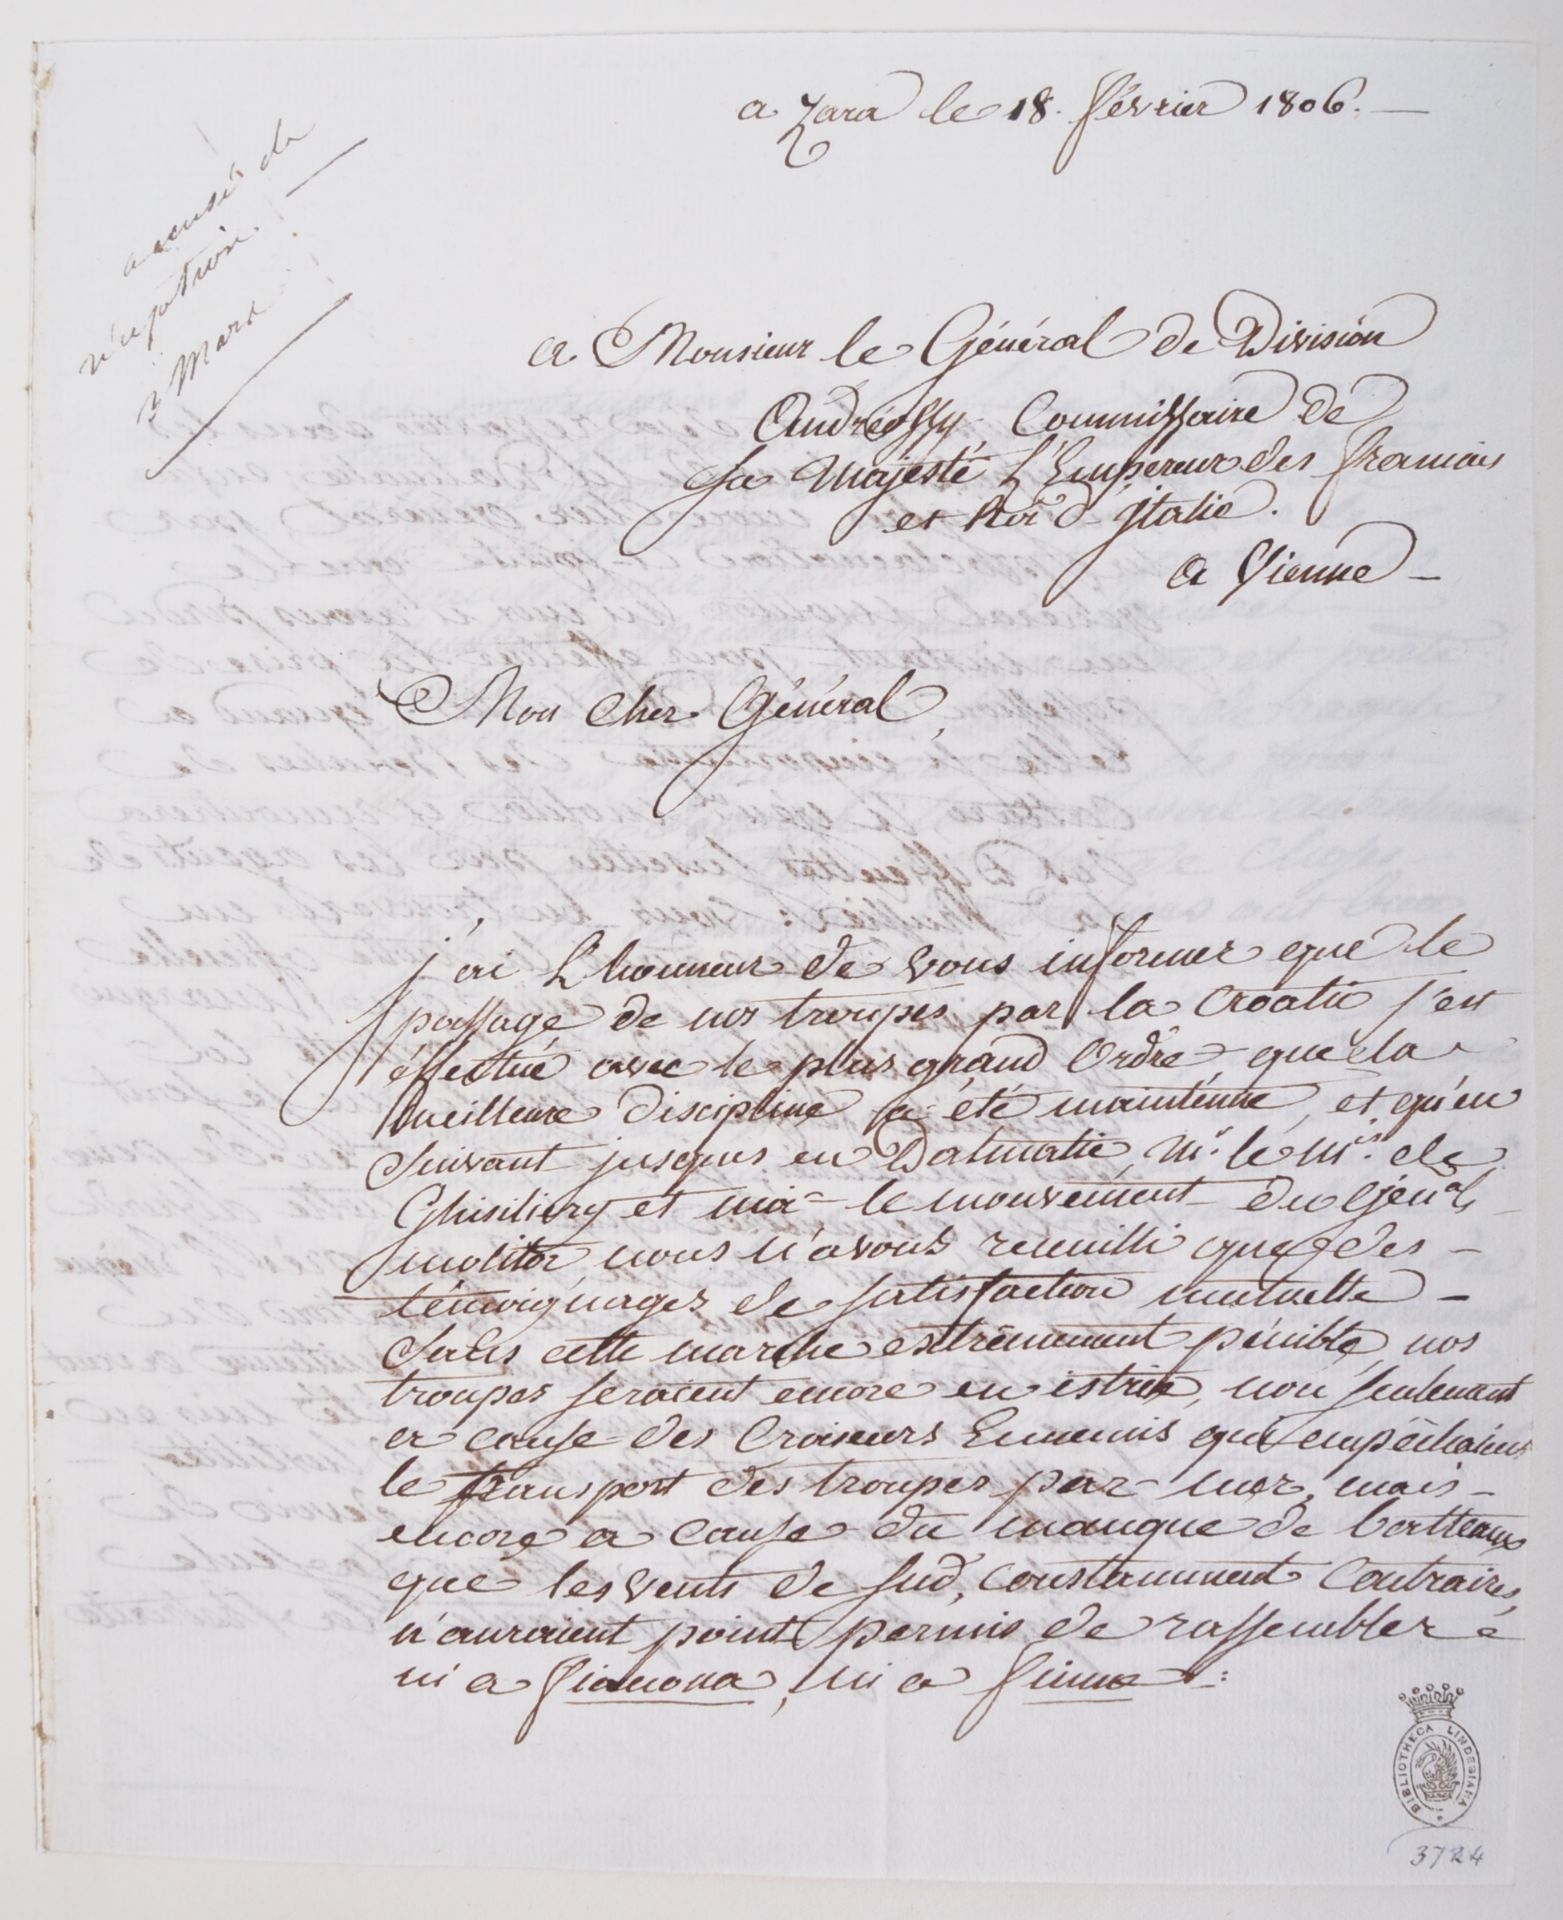 a Zara le 18. février 1806. —
accusé de
réception
3 Mars
a Monsieur le Général de Division
Andréossy, Commissaire de
Sa Majesté L'Empereur des francais
et Roi d'Italie.
a Vienne —
Mon Cher Général,
j'ai L'honneur de vous informer que le
passage de nos troupes par la Croatie s'est
éffectué avec le plus grand Ordre que la
meilleure discipline a été maintenue, et qu'en
suivant jusques en Dalmatie, Mr. le Mis. de
Ghisiliery et moi le mouvement du Genal
molitor, nous n'avons recueilli que des —
témoignages de satisfaction mutuelle —
Sans cette marche extrêmement pénible, nos
troupes seraient encore en istrie, non seulement
a cause des Croiseurs Ennemis qui empêchaient
le transport des troupes par mer, mais —
encore a cause du manque de batteaux
que les vents de sud, constamment Contraires,
n'auraient point permis de rassembler
ni a fiumona, ni a fiume
BIBLIOTHECA LINDESIANA
3724